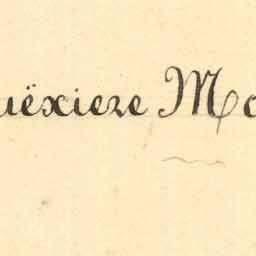 uëxiere Mo